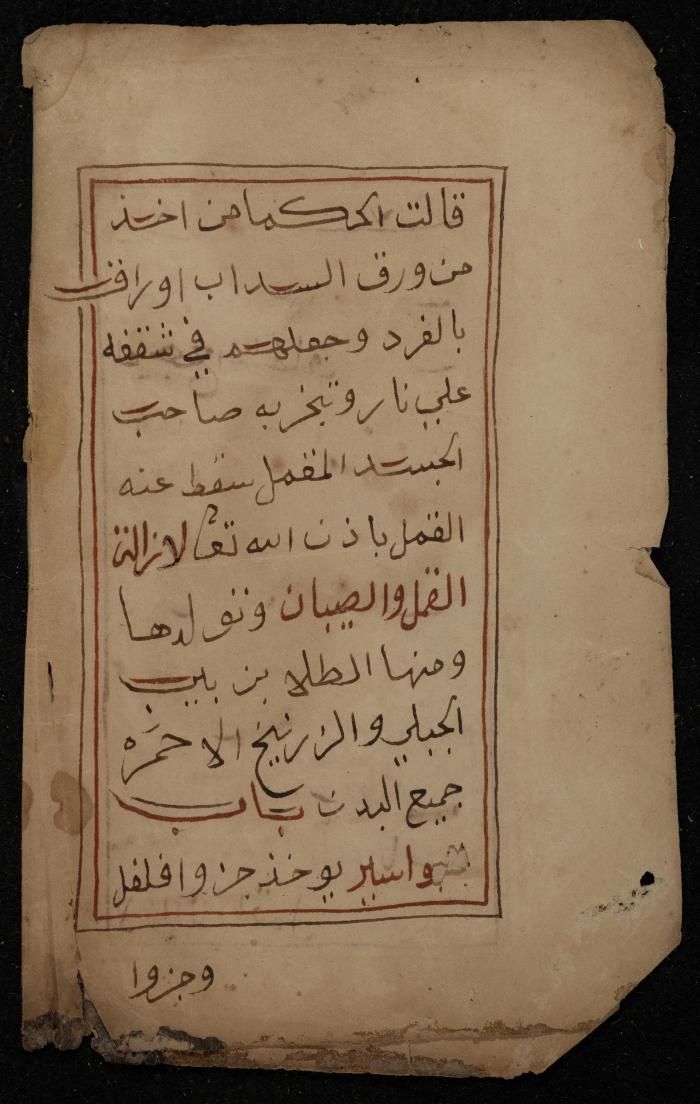 قالت الحكما من اخذ
من ورق السداب اوراق
بالفرد وجعلهم في شقفه
علي نار وتبخر به صاحب
الجسد المقمل سقط عنه
القمل باذن الله تعا لازالة
القمل والصيبان وتولدها
ومنها الطلا بزبيب
الجبلي والزرنيخ الاحمره
جميع البدن باب
بواسير يوخذ جزوا فلفل
وجزوا